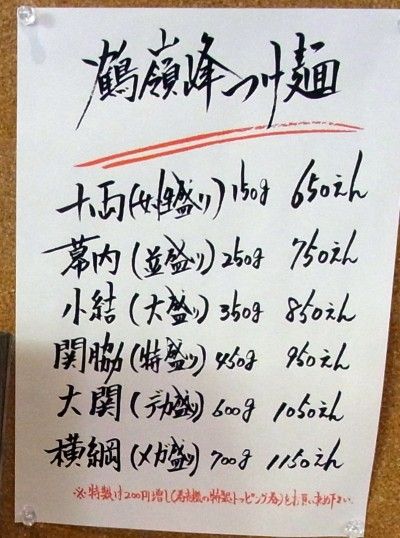 鶴嶺峰つけ麺
十両(女性盛り)150g 650えん
幕内(並盛り)250g 750えん
小結(大盛り)350g 850えん
関脇(特盛り)450g 950えん
大関(デカ盛り)600g 1050えん
横綱(メガ盛り)700g 1150えん
※特製は200円増し(券売機の特製トッピング券)をお買い求め下さい。